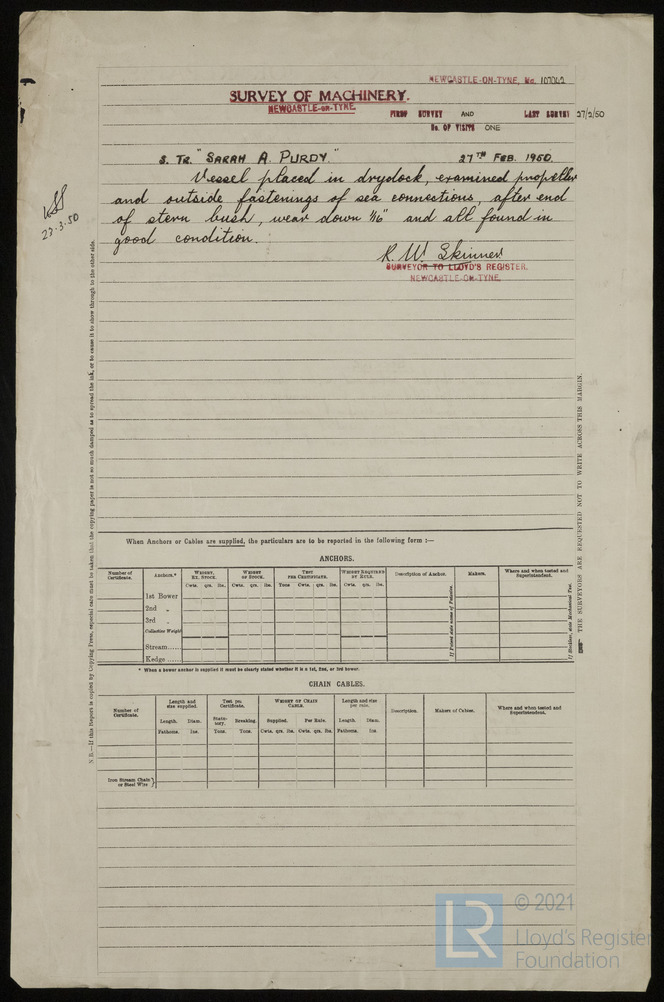 NEWCASTLE-ON-TYNE, No. 107062
SURVEY OF MACHINERY.
NEWCASTLE-ON-TYNE.
FIRST SURVEY AND LAST SURVEY 27/2/50
No. OF VISITS ONE
S. TR. "SARAH A. PURDY." 27TH FEB. 1950.
Vessel placed in drydock, examined propeller
and outside fastenings of sea connections, after end
of stern bush, wear down 1/16" and all found in
good condition.
R. W. Skinner
SURVEYOR TO LLOYD'S REGISTER.
NEWCASTLE-ON-TYNE.
23.3.50
N.B.—If this Report is copied by Copying Press, especial care must be taken that the copying paper is not so much damped as to spread the ink, or to cause it to show through to the other side.
THE SURVEYORS ARE REQUESTED NOT TO WRITE ACROSS THIS MARGIN.
When Anchors or Cables are supplied, the particulars are to be reported in the following form :—
ANCHORS.
Number of Certificate. Anchors.* Weight, Ex. Stock. Weight of Stock. Test per Certificate. Weight Required by Rule. Description of Anchor. Makers. Where and when tested and Superintendent.
Cwts. qrs. lbs. Cwts. qrs. lbs. Tons Cwts. qrs. lbs. Cwts. qrs. lbs.
1st Bower
2nd "
3rd "
Collective Weight
Stream
Kedge
If Patent state name of Patentee.
* When a bower anchor is supplied it must be clearly stated whether it is a 1st, 2nd, or 3rd bower.
CHAIN CABLES.
Number of Certificate. Length and size supplied. Test per Certificate. Weight of Chain Cable. Length and size per rule. Description. Makers of Cables. Where and when tested and Superintendent.
Length. Diam. Statutory. Breaking. Supplied. Per Rule. Length. Diam.
Fathoms. Ins. Tons. Tons. Cwts. qrs. lbs. Cwts. qrs. lbs. Fathoms. Ins.
Iron Stream Chain
or Steel Wire
LR
© 2021
Lloyd's Register
Foundation